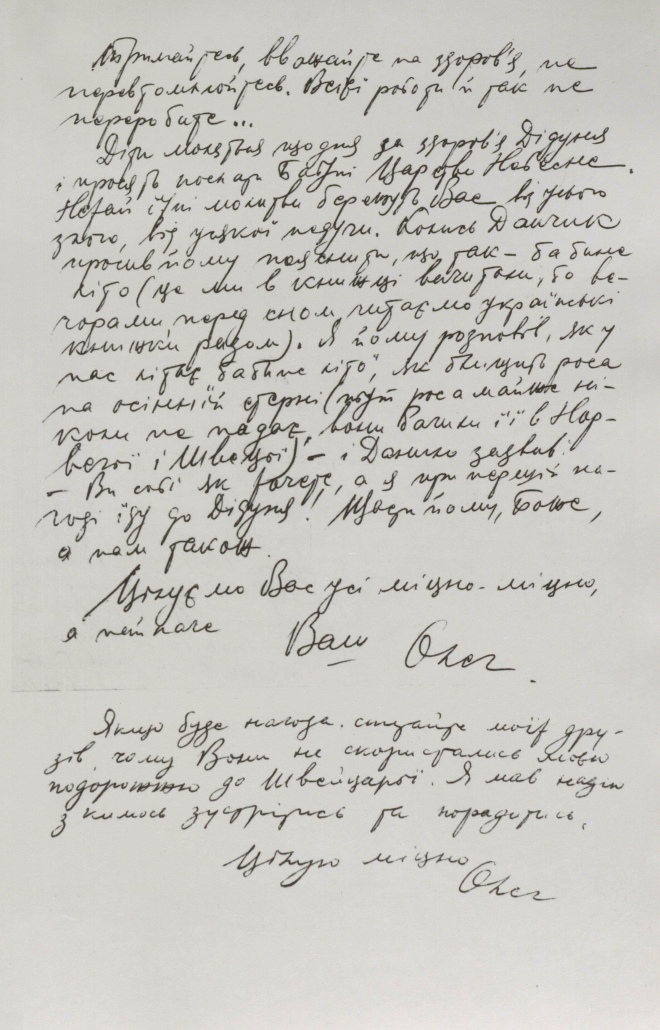 Тримайтесь, вважайте на здоров'я, не
перевтомлюйтесь. Всієї роботи й так не
переробите...
Діти моляться щодня за здоров'я Дідуня
і просять послати Бабуні Царство Небесне.
Нехай їхні молитви бережуть Вас від усього
злого, від усякої недуги. Колись Данчик
просив йому пояснити, що так – бабине
літо (це ми в книжці вичитали, бо ве-
чорами, перед сном, читаємо українські
книжки разом). Я йому розповів, як у
нас літає "бабине літо", як блищить роса
на осінній стерні (тут роса майже ні-
коли не падає, вони бачили її в Нор-
вегії і Швеції) – і Данило заявив:
– Ви собі як хочете, а я при першій на-
годі їду до Дідуня! Щасти йому, Боже,
а нам також.
Цілуємо Вас усі міцно-міцно,
а найпаче
Ваш Олег.
Якщо буде нагода. спитайте моїх дру-
зів, чому Вони не скористались моєю
подорожжю до Швейцарії. Я мав надію
з кимось зустрітись та порадитись.
Цілую міцно
Олег